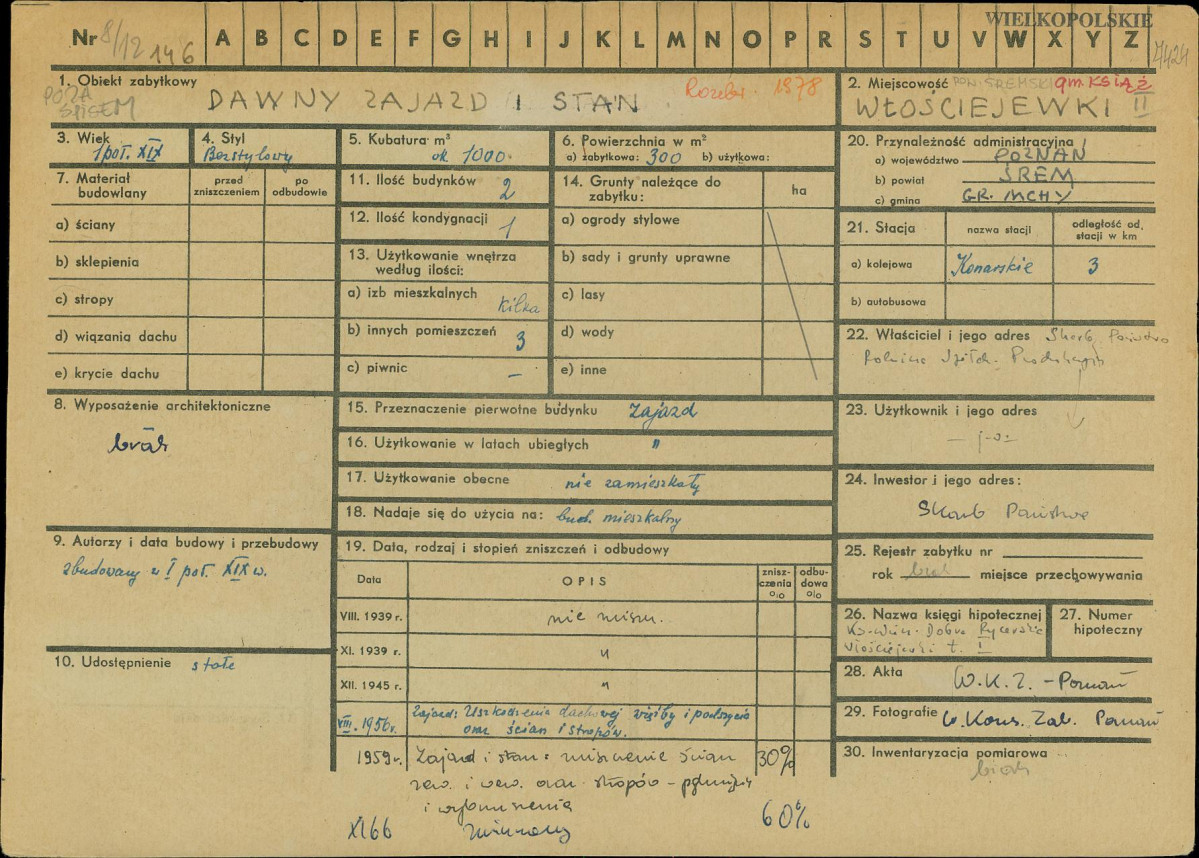 WIELKOPOLSKIE
Nr 8/12 146 A B C D E F G H I J K L M N O P R S T U V W X Y Z
7424
1. Obiekt zabytkowy
POZA
SPISEM
DAWNY ZAJAZD I STAN
Rozebr. 1978
2. Miejscowość POW. ŚREMSKI gm. KSIĄŻ
WŁOŚCIEJEWKI II
3. Wiek
1 poł. XIX
4. Styl
Bezstylowy
5. Kubatura m³
ok 1000
6. Powierzchnia w m²
a) zabytkowa: 300 b) użytkowa:
7. Materiał budowlany
przed zniszczeniem
po odbudowie
a) ściany
b) sklepienia
c) stropy
d) wiązania dachu
e) krycie dachu
8. Wyposażenie architektoniczne
brak
9. Autorzy i data budowy i przebudowy
zbudowany w I poł. XIX w.
10. Udostępnienie stałe
11. Ilość budynków 2
12. Ilość kondygnacji 1
13. Użytkowanie wnętrza
według ilości:
a) izb mieszkalnych kilka
b) innych pomieszczeń 3
c) piwnic —
14. Grunty należące do
zabytku:
ha
a) ogrody stylowe
b) sady i grunty uprawne
c) lasy
d) wody
e) inne
15. Przeznaczenie pierwotne budynku zajazd
16. Użytkowanie w latach ubiegłych "
17. Użytkowanie obecne nie zamieszkały
18. Nadaje się do użycia na: bud. mieszkalny
19. Data, rodzaj i stopień zniszczeń i odbudowy
Data OPIS zniszczenia o/o odbudowa o/o
VIII. 1939 r. nie zniszcz.
XI. 1939 r. "
XII. 1945 r. "
VIII. 1956 r. Zajazd: Uszkodzenia dachowej więźby i podszycia
oraz ścian i stropów.
1959 r. Zajazd i stan: zniszczenie ścian 30%
zew. i wew. oraz stropów – pęknięcia
i wybrzuszenia
XI 66 60%
20. Przynależność administracyjna
a) województwo POZNAŃ
b) powiat ŚREM
c) gmina GR. MCHY
21. Stacja
nazwa stacji
odległość od. stacji w km
a) kolejowa Konarskie 3
b) autobusowa
22. Właściciel i jego adres Skarb Państwa
23. Użytkownik i jego adres
24. Inwestor i jego adres:
Skarb Państwa
25. Rejestr zabytku nr
rok brak miejsce przechowywania
26. Nazwa księgi hipotecznej
Dobra Rycerskie
Włościejewki t. I
27. Numer
hipoteczny
28. Akta W.K.Z. – Poznań
29. Fotografie W. Kons. Zab. Poznań
30. Inwentaryzacja pomiarowa
brak